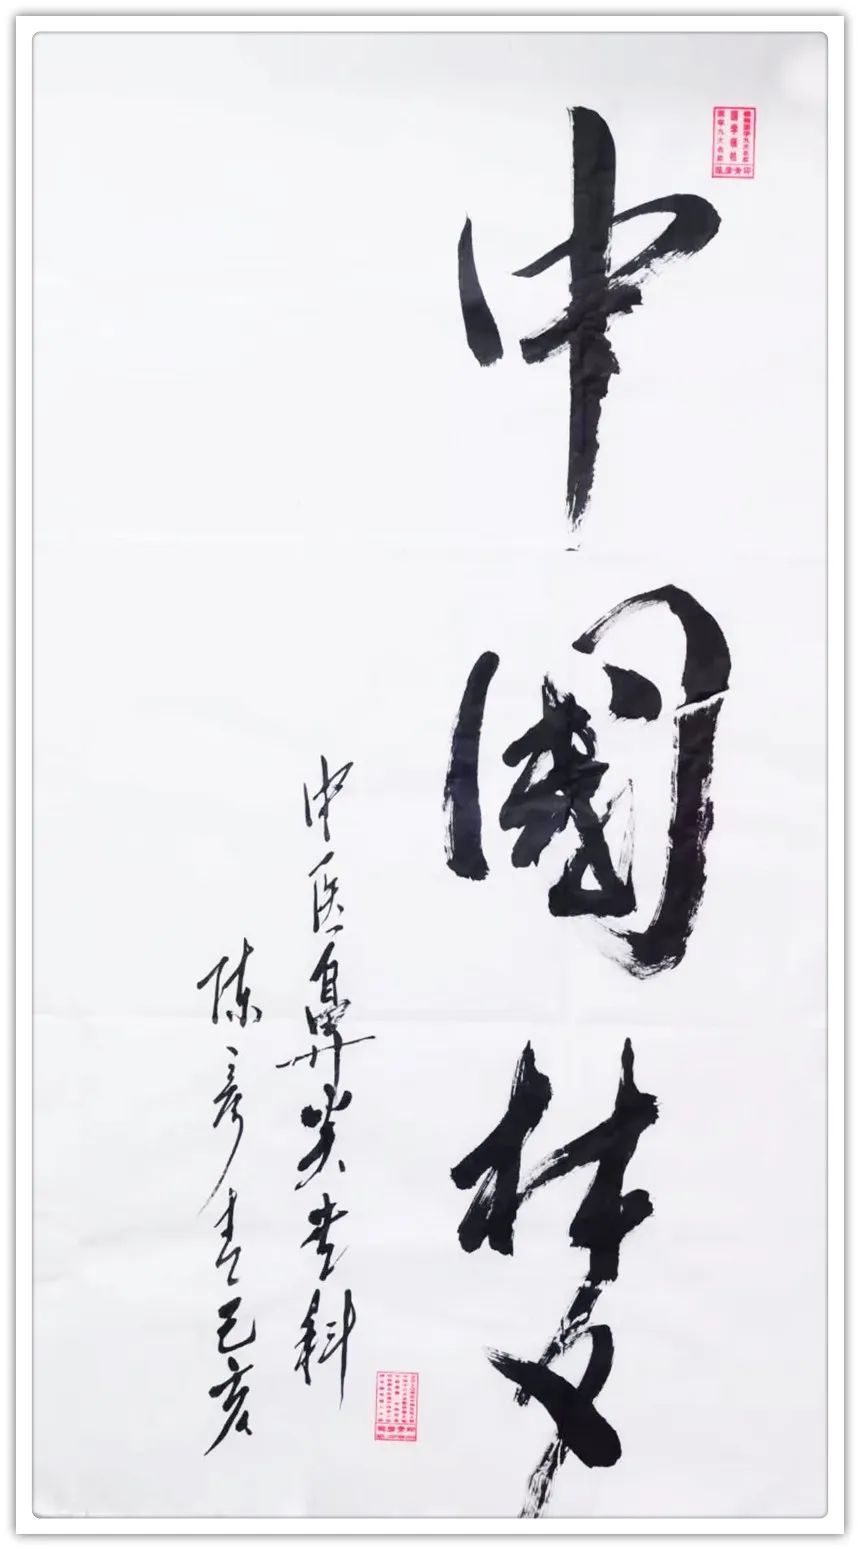 中國梦
中医鼻炎专科
陈彦青己亥